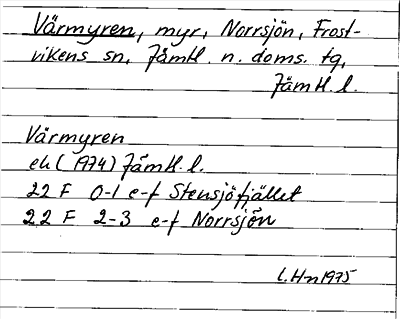 Värmyren, myr, Norrsjön, Frost-
vikens sn, Jämtl. n. doms. tg,
Jämtl. l.
Värmyren
ek (1974) Jämtl. l.
22 F 0-1 e-f Stensjöfjället
22 F 2-3 e-f Norrsjön
L.Hn 1975